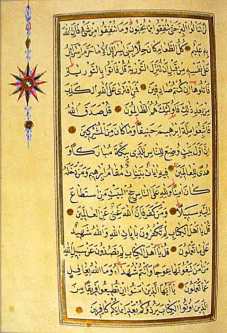 لن تنالوا البر حتى تنفقوا مما تحبون وما تنفقوا من شيء فان الله
به عليم كل الطعام كان حلا لبني اسرائيل الا ما حرم اسرائيل
على نفسه من قبل ان تنزل التورية قل فاتوا بالتورية
فاتلوها ان كنتم صادقين فمن افترى على الله الكذب
من بعد ذلك فاولئك هم الظالمون قل صدق الله
فاتبعوا ملة ابرهيم حنيفا وما كان من المشركين
ان اول بيت وضع للناس للذي ببكة مباركا و
هدى للعالمين فيه ايات بينات مقام ابرهيم ومن دخله
كان امنا ولله على الناس حج البيت من استطاع
اليه سبيلا ومن كفر فان الله غني عن العالمين
قل يا اهل الكتاب لم تكفرون بايات الله والله شهيد
على ما تعملون قل يا اهل الكتاب لم تصدون عن سبيل الله
من امن تبغونها عوجا وانتم شهداء وما الله بغافل
عما تعملون يا ايها الذين امنوا ان تطيعوا فريقا من
الذين اوتوا الكتاب يردوكم بعد ايمانكم كافرين